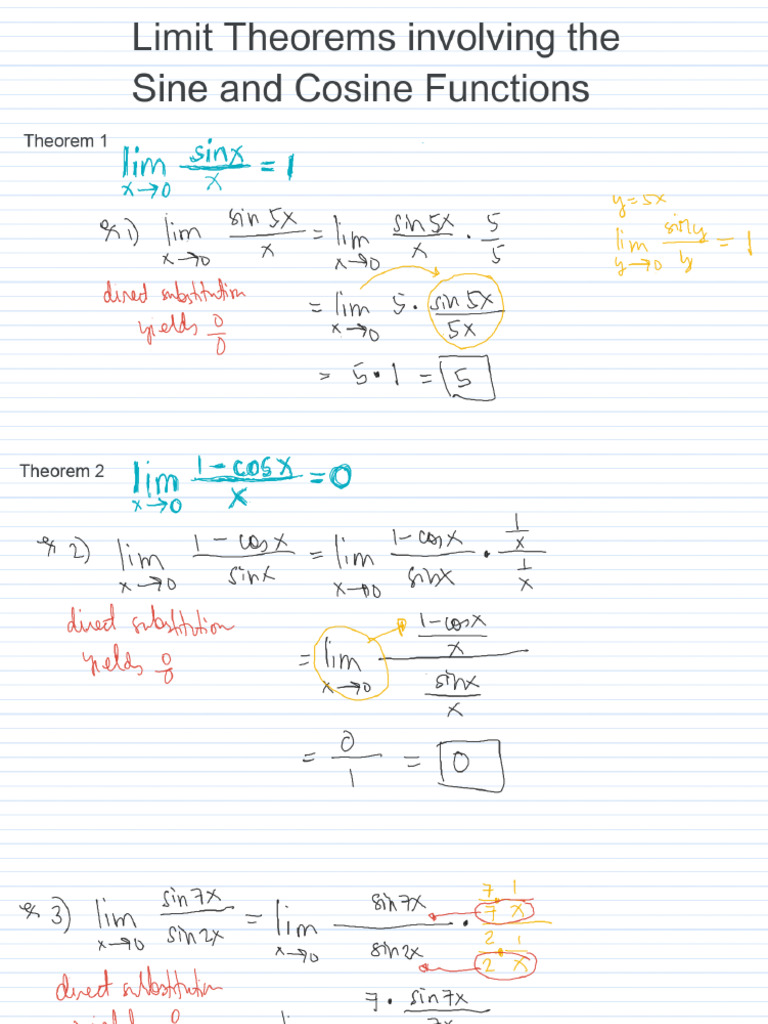 Limit Theorems involving the
Sine and Cosine Functions
Theorem 1
lim x→0 sinx/x = 1
y = 5x
lim y→0 siny/y = 1
ex 1) lim x→0 sin 5x/x = lim x→0 sin 5x/x · 5/5
direct substitution
yields 0/0
= lim x→0 5 · sin 5x/5x
= 5 · 1 = 5
Theorem 2
lim x→0 1 - cosx/x = 0
ex 2) lim x→0 1 - cosx/sinx = lim x→0 1 - cosx/sinx · 1/x / 1/x
direct substitution
yields 0/0
= lim x→0 1 - cosx/x / sinx/x
= 0/1 = 0
ex 3) lim x→0 sin7x/sin2x = lim x→0 sin7x/sin2x · 7/7 · 1/x / 2/2 · 1/x
direct substitution
7 · sin7x